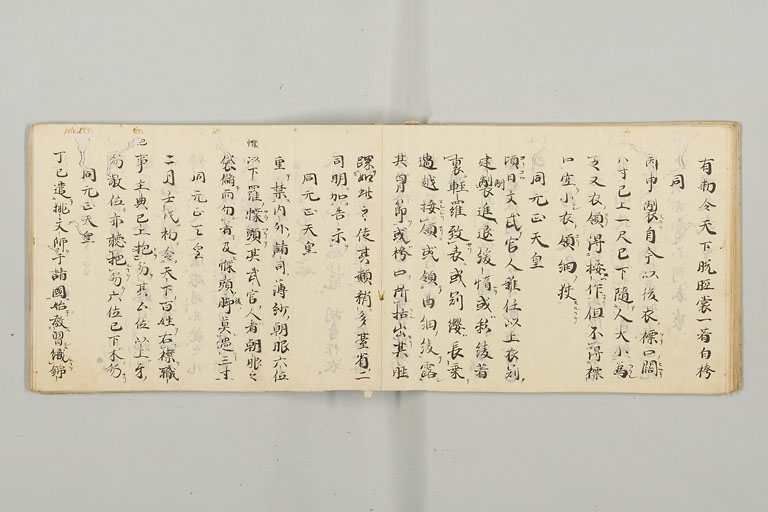 有勅令天下脱脛裳一着白袴
同
制自今以後衣褾口闊
八寸已上一尺已下随人大小為
之又衣領得接作但不得褾
口窄小衣領細狭
同元正天皇
頃日文武官人雑任以上衣
製進退緩惰或
裏軽羅致表或別纓長乗
過越接領或領曲細綾露
其骨節或袴口所
如此之徒其類稍多宜省二
司明加告示
同元正天皇
重禁内外諸司薄紗朝服六位
以下羅幞頭其武官人者朝服之
袋備而勿着及幞頭脚莫過三寸
同元正天皇
二月壬戌初令天下百姓右襟職
事主典已上把笏其五位以上牙
笏散位亦聴把笏六位已下木笏
同元正天皇
丁巳遣挑文師于諸国始教習織錦